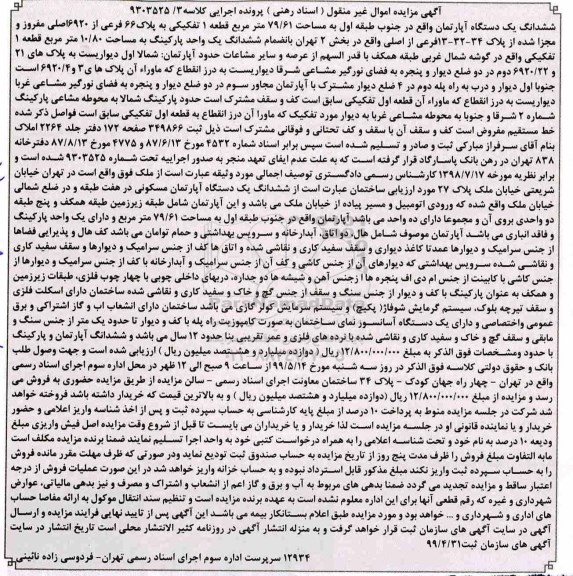 آگهی مزایده اموال غیر منقول ( اسناد رهنی ) پرونده اجرایی کلاسه۳/ ۹۳۰۳۵۲۵
ششدانگ یک دستگاه آپارتمان واقع در جنوب طبقه اول به مساحت ۷۹/۶۱ متر مربع قطعه ۱ تفکیکی به پلاک۶۶ فرعی از ۶۹۲۰اصلی مفروز و
مجزا شده از پلاک ۳۴-۳۳-۱۳فرعی از اصلی واقع در بخش ۲ تهران بانضمام ششدانگ یک واحد پارکینگ به مساحت ۱۰/۸۰ متر مربع قطعه ۱
تفکیکی واقع در گوشه شمال غربی طبقه همکف با قدر السهم از عرصه و سایر مشاعات حدود آپارتمان: شمالا اول دیواریست به پلاک های ۲۱
و ۶۹۲۰/۲۲ دوم در دو ضلع دیوار و پنجره به فضای نورگیر مشاعی شرقا دیواریست به درز انقطاع که ماوراء آن پلاک های۳ و۶۹۲۰/۴ است
جنوبا اول دیوار و درب به راه پله دوم در ۴ ضلع دیوار مشترک با آپارتمان مجاور سوم در دو ضلع دیوار و پنجره به فضای نورگیر مشاعی غربا
دیواریست به درز انقطاع که ماوراء آن قطعه اول تفکیکی سابق است کف و سقف مشترک است حدود پارکینگ شمالا به محوطه مشاعی پارکینگ
شماره ۲ شرقا و جنوبا به محوطه مشاعی غربا به دیوار مورد تفکیک که ماورا آن درز انقطاع به قطعه اول تفکیکی سابق است فواصل ذکر شده
خط مستقیم مفروض است کف و سقف آن با سقف و کف تحتانی و فوقانی مشترک است ذیل ثبت ۳۴۹۸۶۶ صفحه ۱۷۲ دفتر جلد ۲۲۶۴ املاک
بنام آقای سرفراز مبارکی ثبت و صادر و تسلیم شده است سپس برابر اسناد شماره ۴۵۳۲ مورخ ۸۷/۶/۱۳ و ۴۷۷۵ مورخ ۸۷/۸/۱۳ دفترخانه
۸۳۸ تهران در رهن بانک پاسارگاد قرار گرفته است که به علت عدم ایفای تعهد منجر به صدور اجراییه تحت شماره ۹۳۰۳۵۲۵ شده است و
برابر نظریه مورخه ۱۳۹۸/۷/۱۷ کارشناس رسمی دادگستری توصیف اجمالی مورد وثیقه عبارت است از ملک فوق واقع است در تهران خیابان
شریعتی خیابان ملک پلاک ۲۷ مورد ارزیابی ساختمان عبارت است از ششدانگ یک دستگاه آپارتمان مسکونی در هفت طبقه و در ضلع شمالی
خیابان ملک واقع شده که ورودی اتومبیل و مسیر پیاده از خیابان ملک می باشد و این آپارتمان شامل طبقه زیرزمین طبقه همکف و پنج طبقه
دو واحدی بروی آن و مجموعا دارای ده واحد می باشد آپارتمان واقع در جنوب طبقه اول به مساحت ۷۹/۶۱ متر مربع و دارای یک واحد پارکینگ
و فاقد انباری می باشد آپارتمان موصوف شامل هال، دو اتاق، آبدارخانه و سرویس بهداشتی و حمام توامان می باشد کف هال و پذیرایی فضاها
از جنس سرامیک و دیوارها عمدتا کاغذ دیواری و سقف سفید کاری و نقاشی شده و اتاق ها کف از جنس سرامیک و دیوارها و سقف سفید کاری
و نقاشی شده سرویس بهداشتی که دیوارهای آن از جنس کاشی و کف آن از جنس سرامیک و آبدارخانه با کف از جنس سرامیک و دیوارها از
جنس کاشی با کابینت از جنس ام دی اف پنجره ها ازجنس آهن و شیشه ها دو جداره، دربهای داخلی چوبی با چهار چوب فلزی، طبقات زیرزمین
و همکف به عنوان پارکینگ با کف و دیوار از جنس سنگ و سقف از جنس گچ و خاک و سفید کاری و نقاشی شده ساختمان دارای اسکلت فلزی
و سقف تیرچه بلوک، سیستم گرمایش شوفاژ( پکیج) و سیستم سرمایش کولر گازی می باشد ساختمان دارای انشعاب اب و گاز اشتراکی و برق
عمومی واختصاصی و دارای یک دستگاه آسانسور نمای ساختمان به صورت کامپوزیت راه پله با کف و دیوار تا حدود یک متر از جنس سنگ و
مابقی و سقف گچ و خاک و سفید کاری و نقاشی شده با نرده های فلزی و عمر تقریبی بنا حدود ۱۲ سال می باشد و ششدانگ آپارتمان و پارکینگ
با حدود ومشخصات فوق الذکر به مبلغ ۱۲/۸۰۰/۰۰۰/۰۰۰ ریال ( دوازده میلیارد و هشتصد میلیون ریال ) ارزیابی شده است و جهت وصول طلب
بانک و حقوق دولتی کلاسه فوق الذکر در روز سه شنبه مورخ ۹۹/۵/۱۴ از ساعت ۹ صبح الی ۱۲ ظهر در محل اداره سوم اجرای اسناد رسمی
واقع در تهران - چهار راه جهان کودک - پلاک ۳۴ ساختمان معاونت اجرای اسناد رسمی - سالن مزایده از طریق مزایده حضوری به فروش می
رسد و مزایده از مبلغ ۱۲/۸۰۰/۰۰۰/۰۰۰ ریال (دوازده میلیارد و هشتصد میلیون ریال ) و به بالاترین قیمت که خریدار داشته باشد فروخته خواهد
شد شرکت در جلسه مزایده منوط به پرداخت ۱۰ درصد از مبلغ پایه کارشناسی به حساب سپرده ثبت و پس از اخذ شناسه واریز اعلامی و حضور
خریدار و یا نماینده قانونی او در جلسه مزایده است لذا خریدار و یا خریداران می بایست تا قبل از شروع وقت مزایده اصل فیش واریزی مبلغ
ودیعه ۱۰ درصد به نام خود و تحت شناسه اعلامی را به همراه درخواست کتبی خود به واحد اجرا تسلیم نمایند ضمنا برنده مزایده مکلف است
مابه التفاوت مبلغ فروش را ظرف مدت پنج روز از تاریخ مزایده به حساب صندوق ثبت تودیع نماید ودر صورتی که ظرف مهلت مقرر مانده فروش
را به حساب سپرده ثبت واریز نکند مبلغ مذکور قابل استرداد نبوده و به حساب خزانه واریز خواهد شد در این صورت عملیات فروش از درجه
اعتبار ساقط و مزایده تجدید می گردد ضمنا بدهی های مربوط به آب و برق و گاز اعم از انشعاب و اشتراک و مصرف و نیز بدهی مالیاتی، عوارض
شهرداری و غیره که رقم قطعی آنها برای این اداره معلوم نشده است به عهده برنده مزایده است و تنظیم سند انتقال موکول به ارائه مفاصا حساب
های اداری و شهرداری و ... خواهد بود و مورد مزایده طبق اعلام بستانکار بیمه می باشد این آگهی پس از تایید نهایی فرایند مزایده و ارسال
آگهی در سایت آگهی های سازمان ثبت قرار خواهد گرفت و به منزله انتشار آگهی در روزنامه کثیر الانتشار محلی است تاریخ انتشار در سایت
آگهی های سازمان ثبت۹۹/۴/۳۱
۱۲۹۳۴ سرپرست اداره سوم اجرای اسناد رسمی تهران- فردوسی زاده نائینی